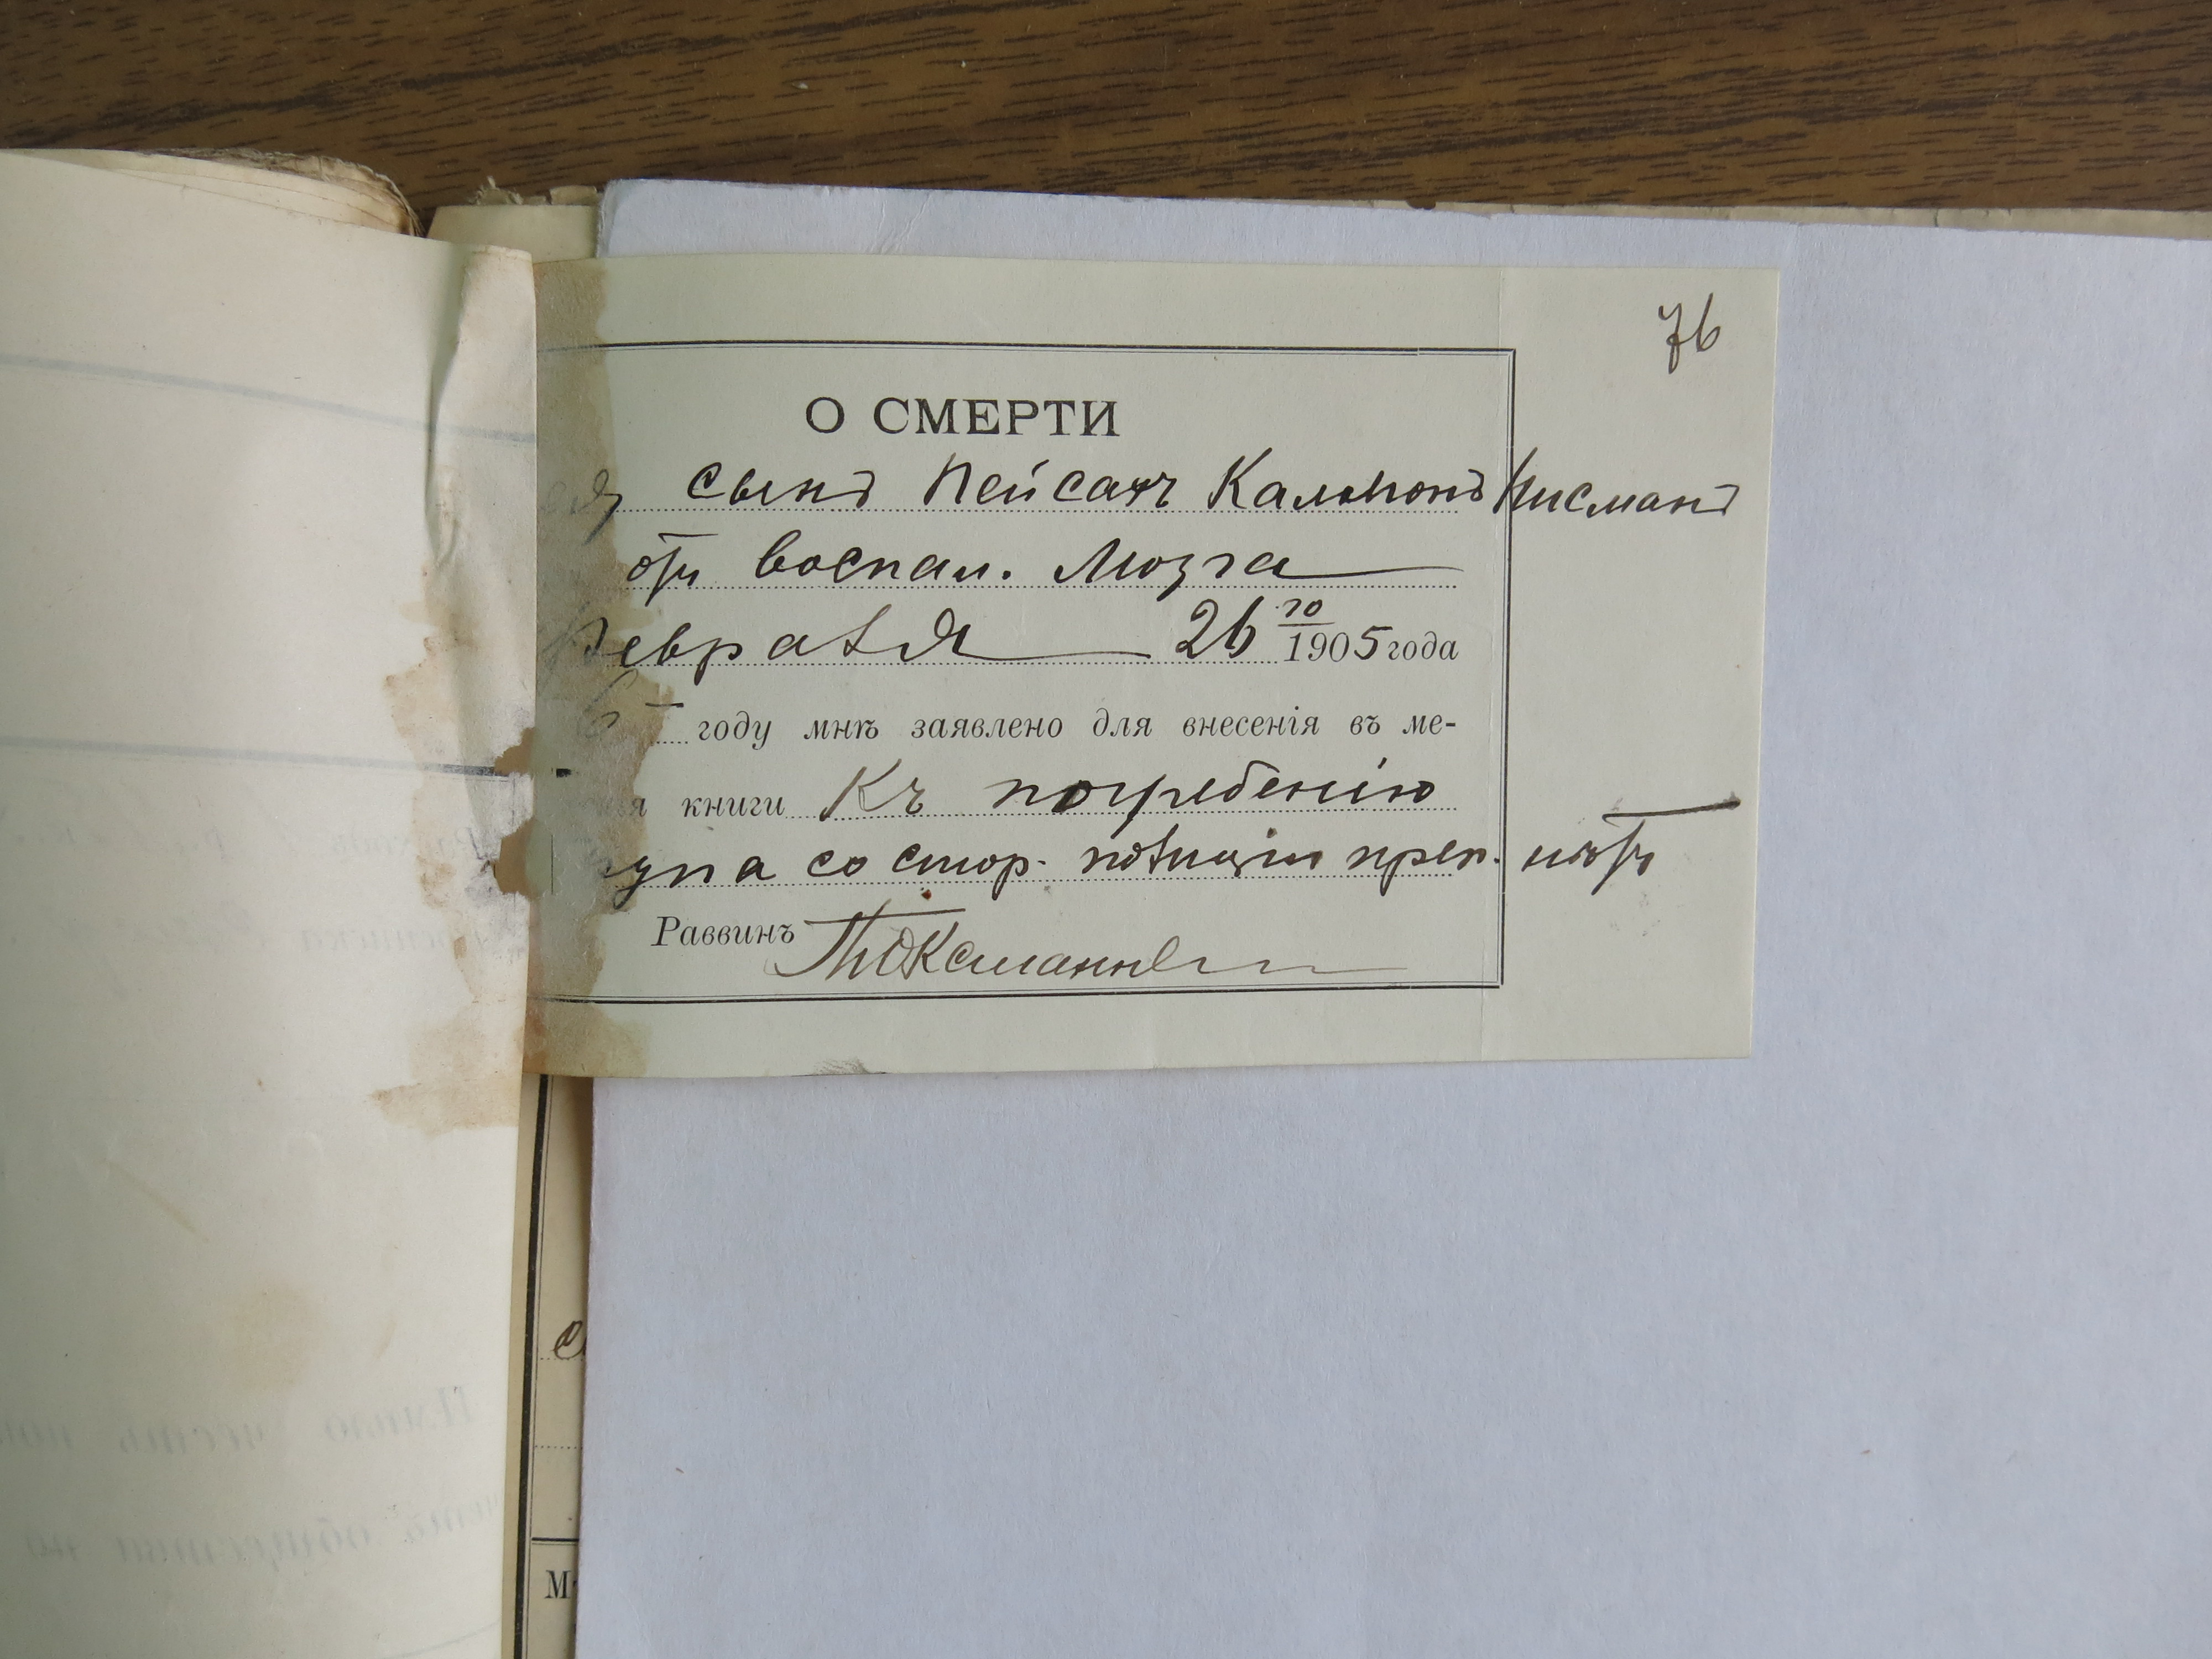 76
О СМЕРТИ
сынъ Пейсахъ Кальмонъ Нисманъ
отъ воспал. Мозга
Февраля 26 го 1905 года
году мнѣ заявлено для внесенія въ ме-
книги Къ погребенію
со стор. полиціи преп. нѣтъ
Раввинъ